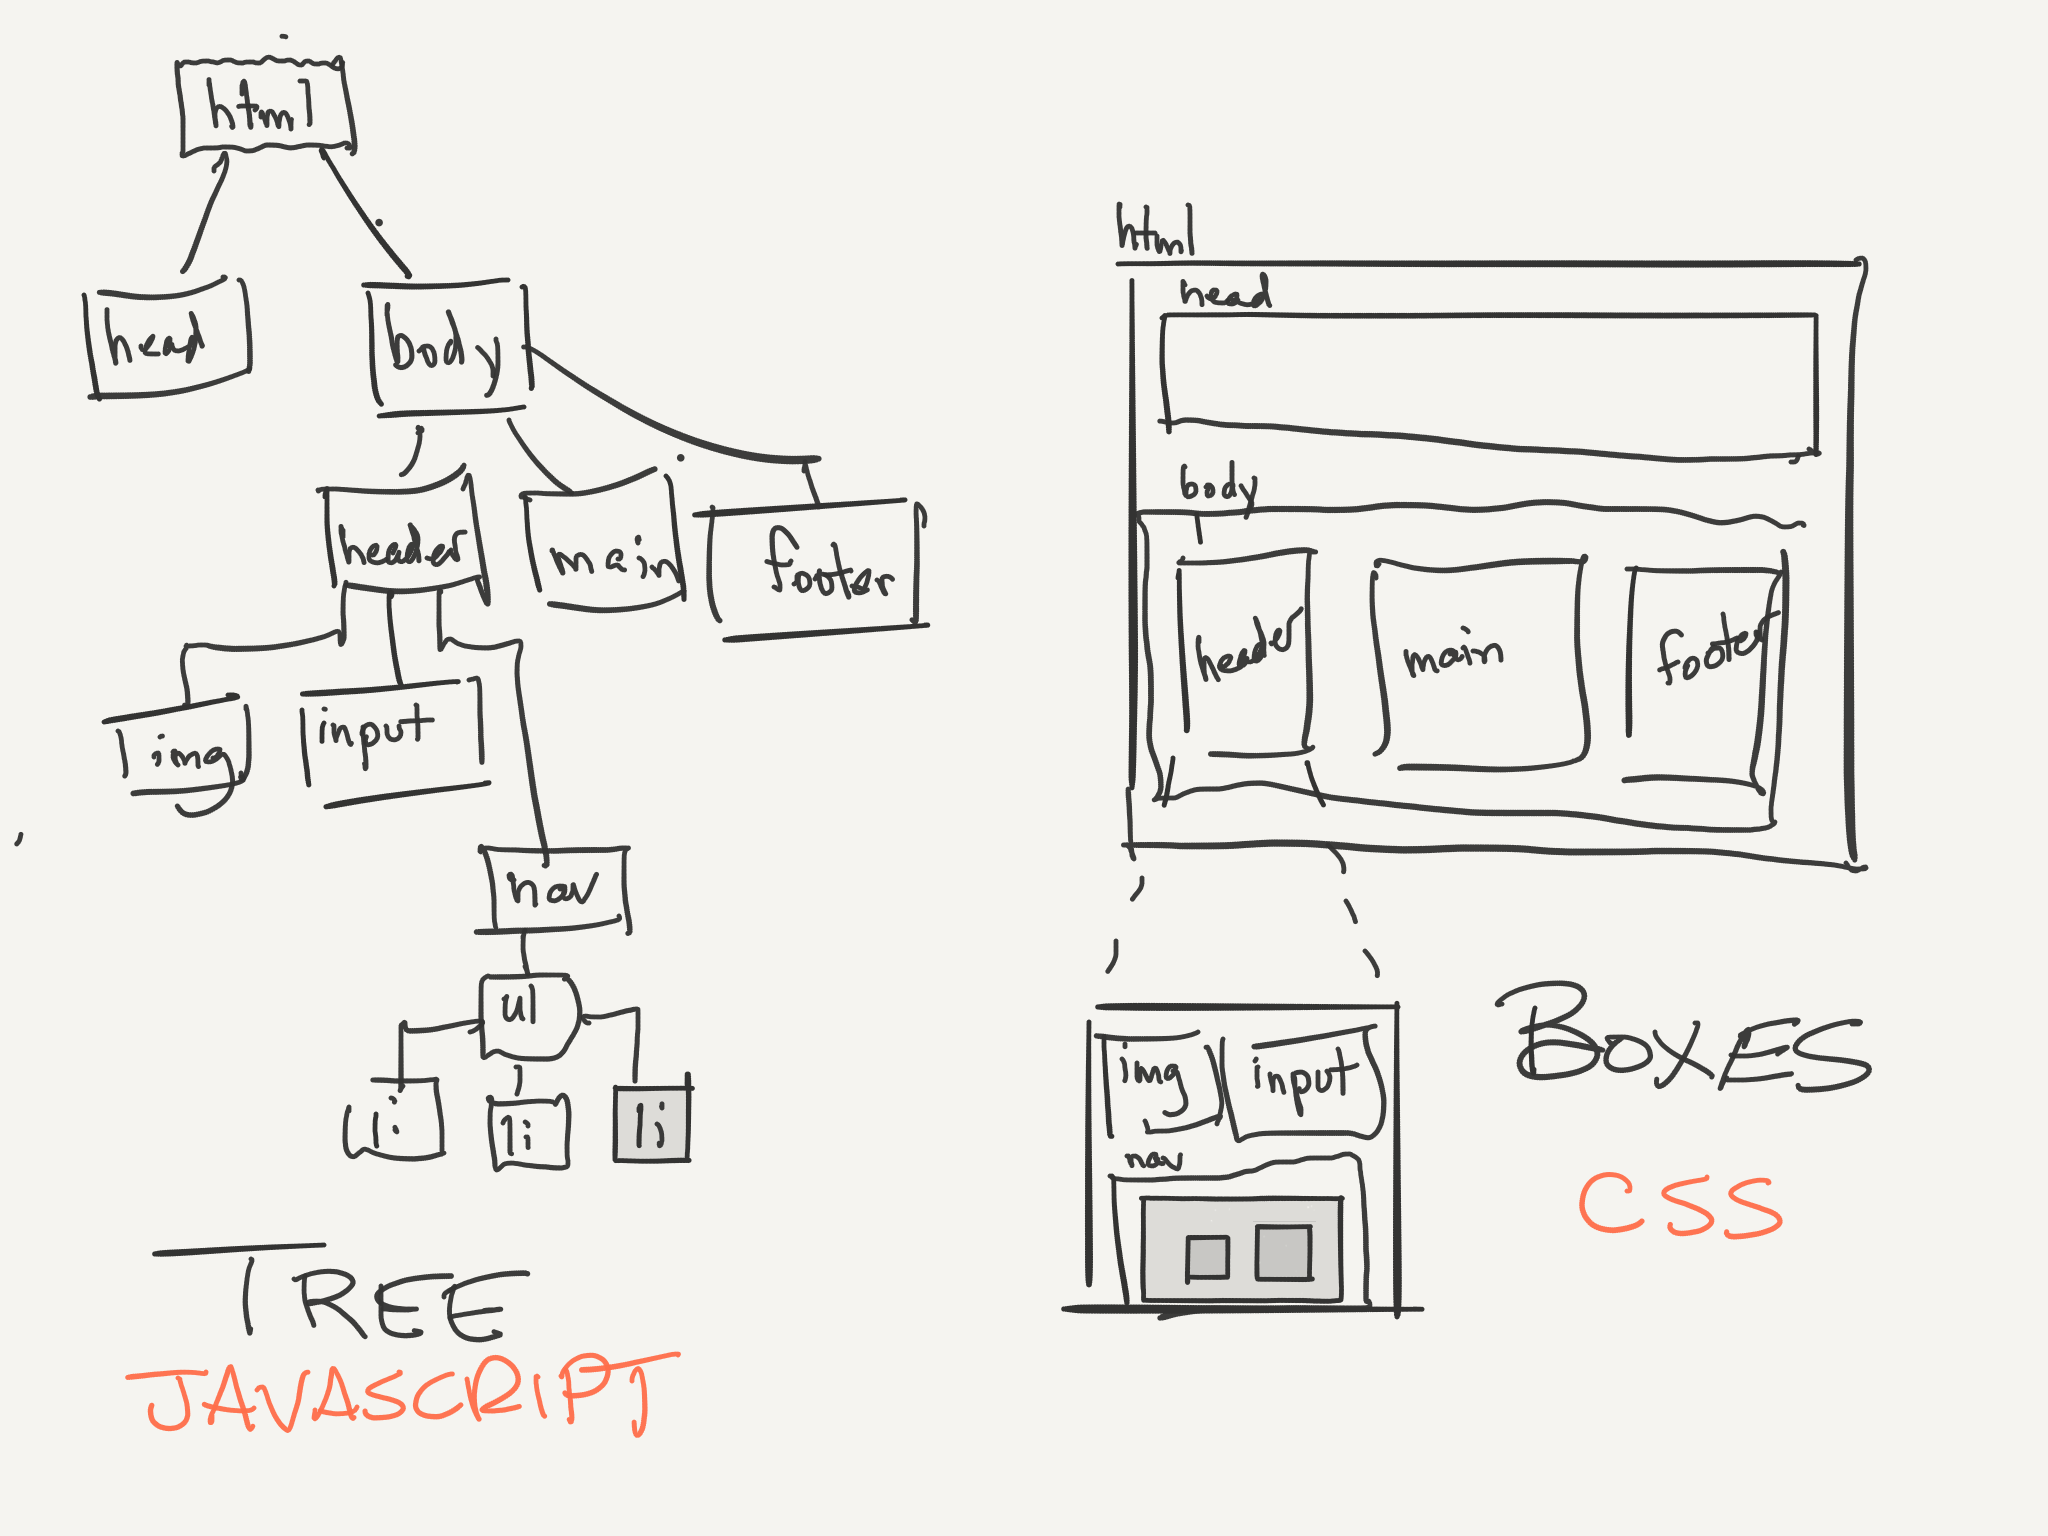 html
head
body
header
main
footer
img
input
nav
ul
li
li
li
TREE
JAVASCRIPT
html
head
body
header
main
footer
img
input
nav
BOXES
CSS